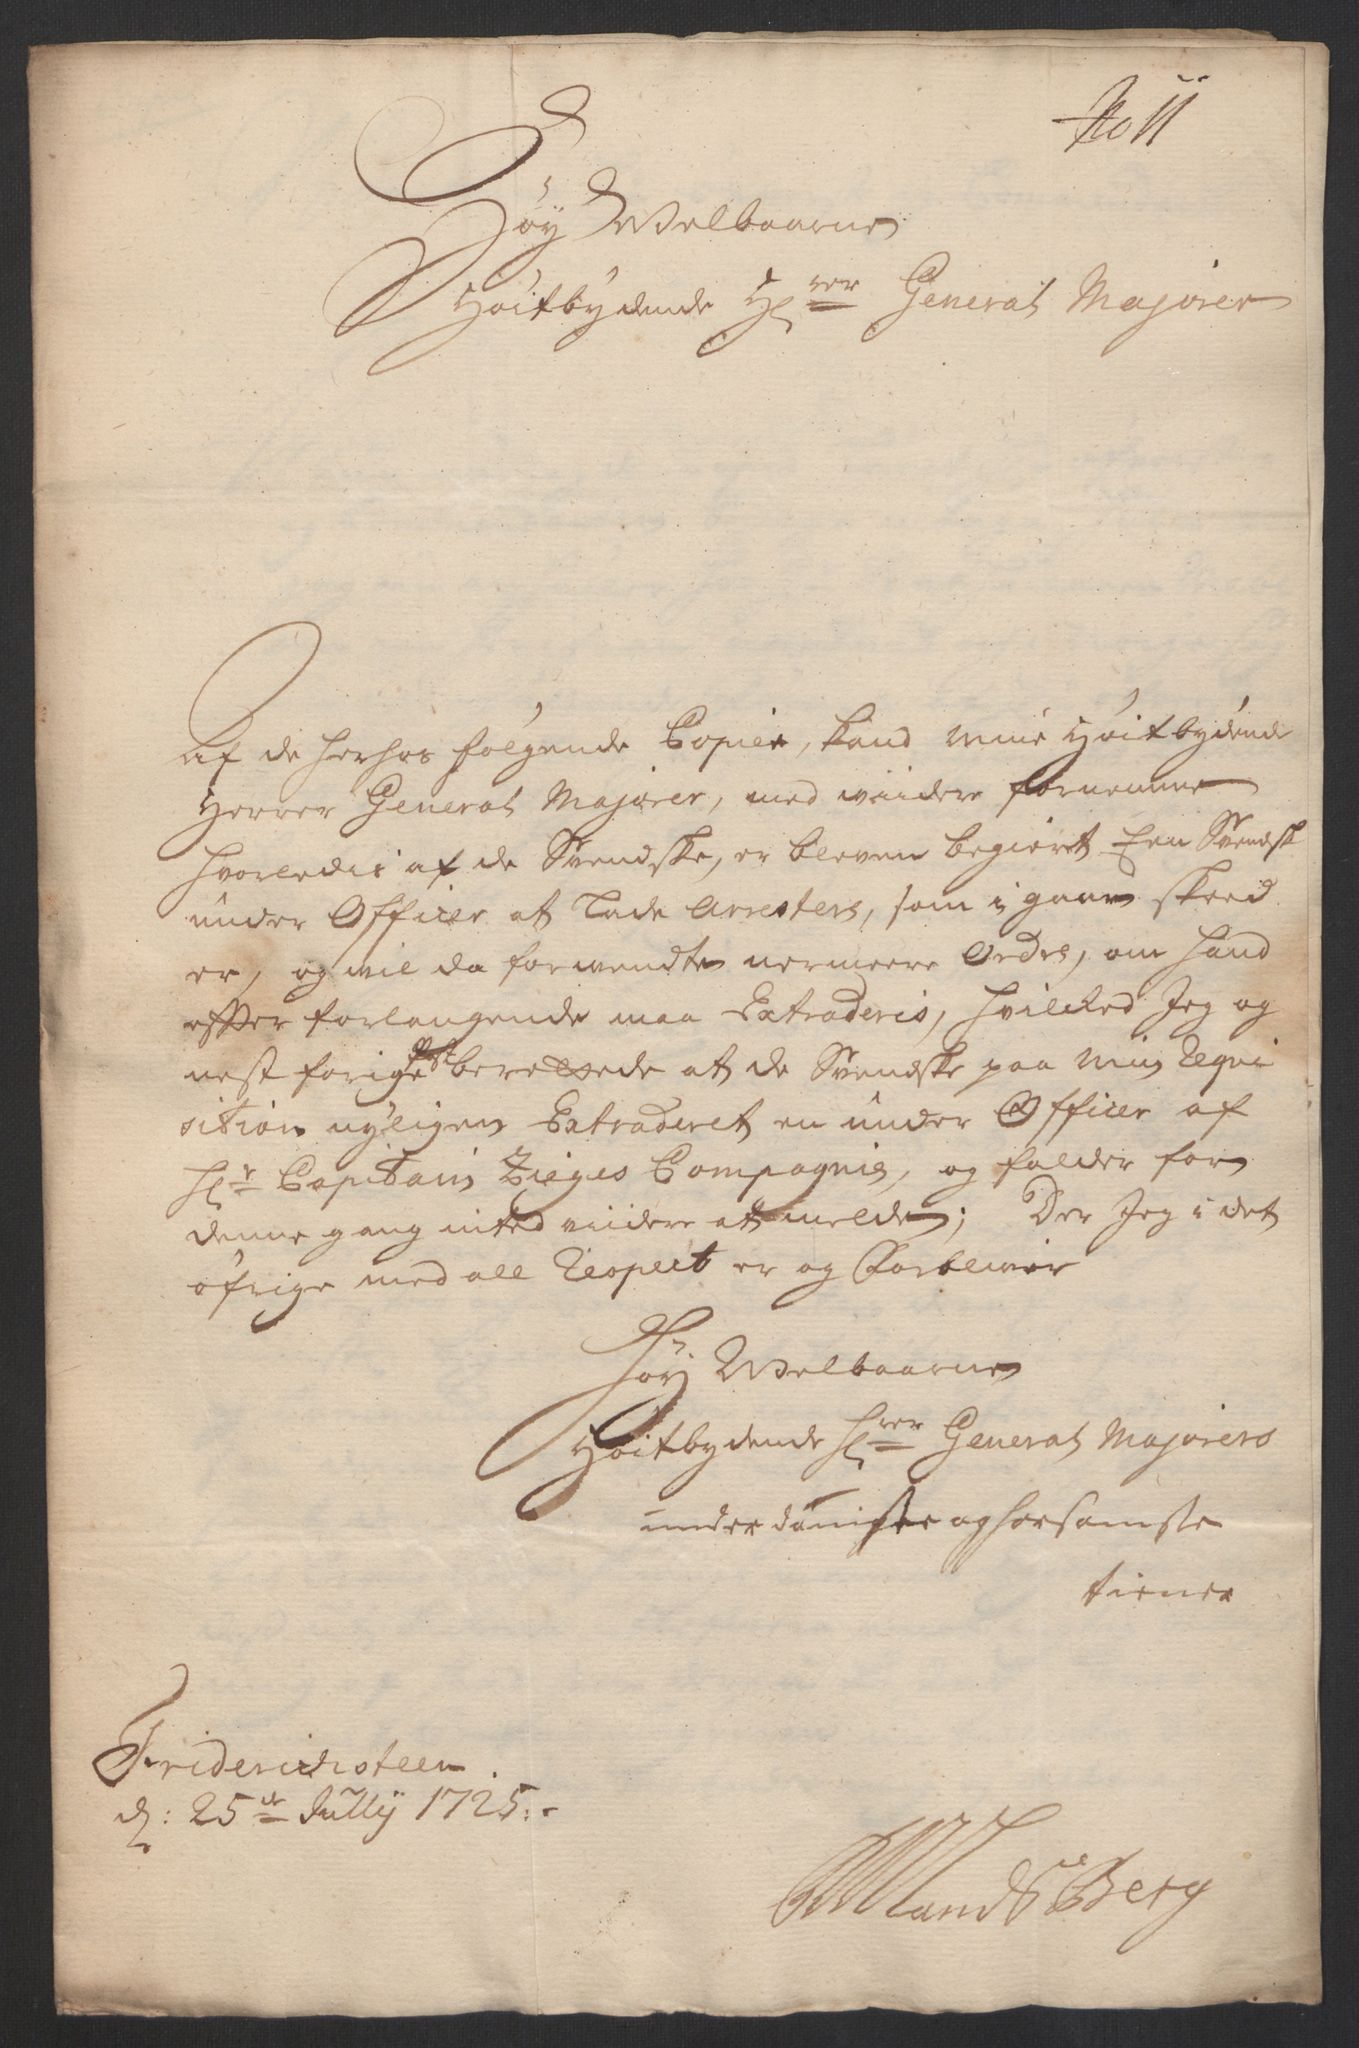 No 11
Høy Welbaarne
Høitbydende Hrer General Majorer
Af de herhos følgende Copier, kand mine Høitbydende
Herrer General Majorer, med viidere fornemme
hvorledis af de Svendske, er bleven begieret Een Svendsk
under Officer at lade Arrestere, som i gaar skeed
er, og vil da forvendte nermeere Ordre, om hand
effter forlangende maa Extraderis, hvilcked Jeg og
nest forige post berettede at de Svendske paa min Requi
sition nyligen Extraderet en under Officer af
Hr Capitain Zieges Compagnie, og falder for
denne gang inted viidere at melde; Der Jeg i det
øfrige med all Respect er og Forblivir
Høy Welbaarne
Høitbydende Hrer General Majorers
underdanigste og horsamste
tiener
Friderichsteen
d: 25de Jully 1725.
Landsberg